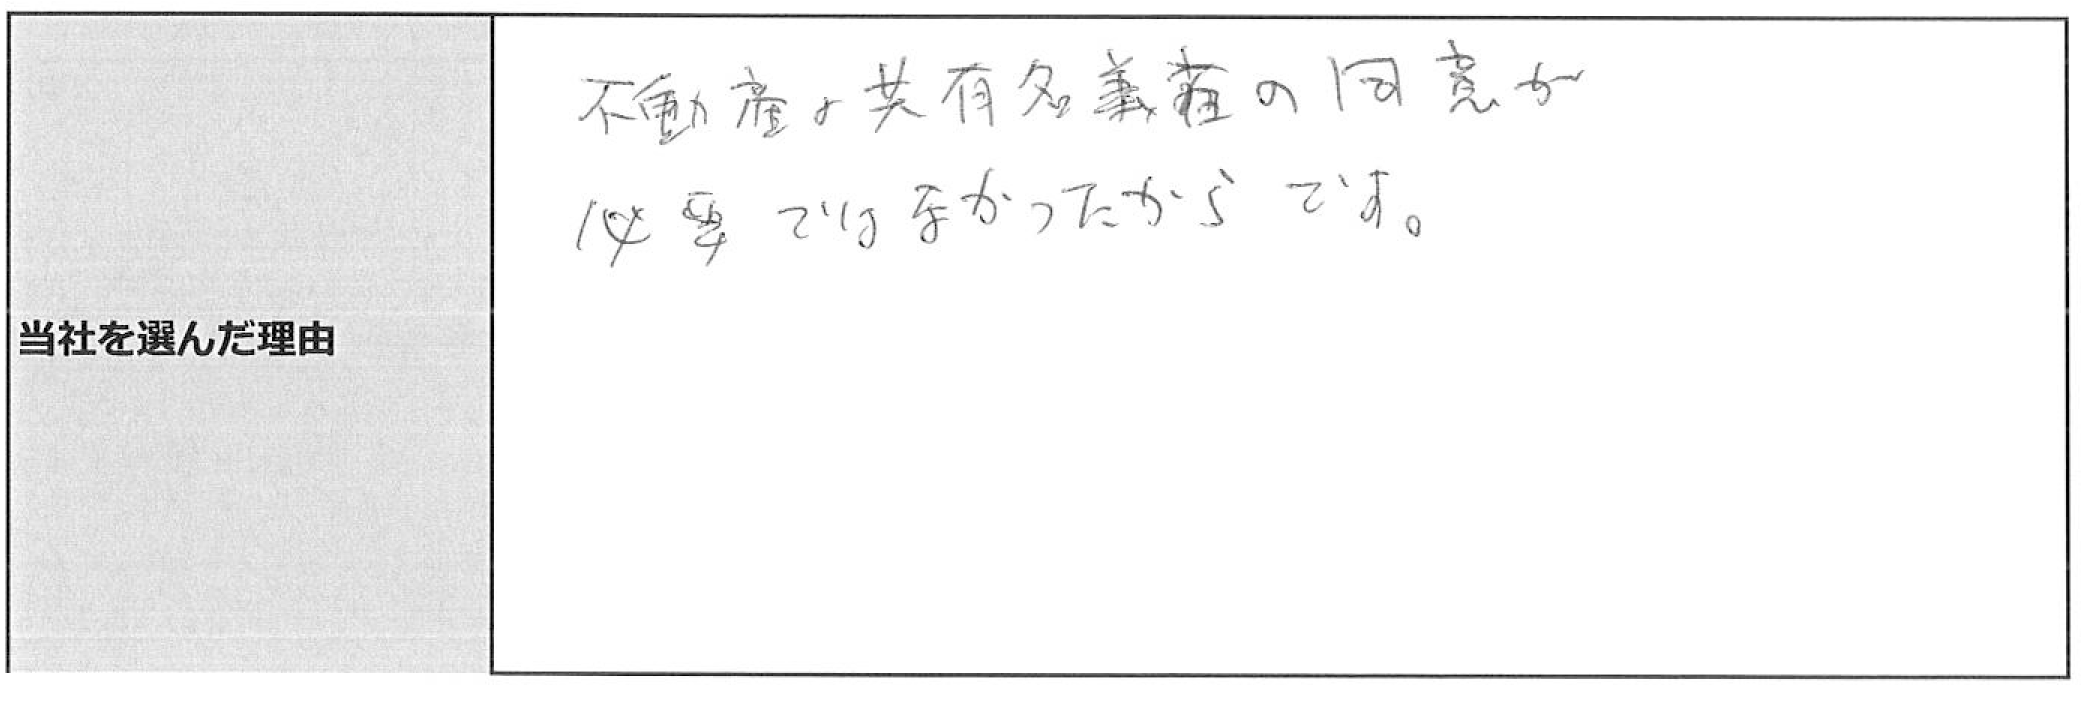 当社を選んだ理由
不動産の共有名義者の同意が
必要ではなかったからです。